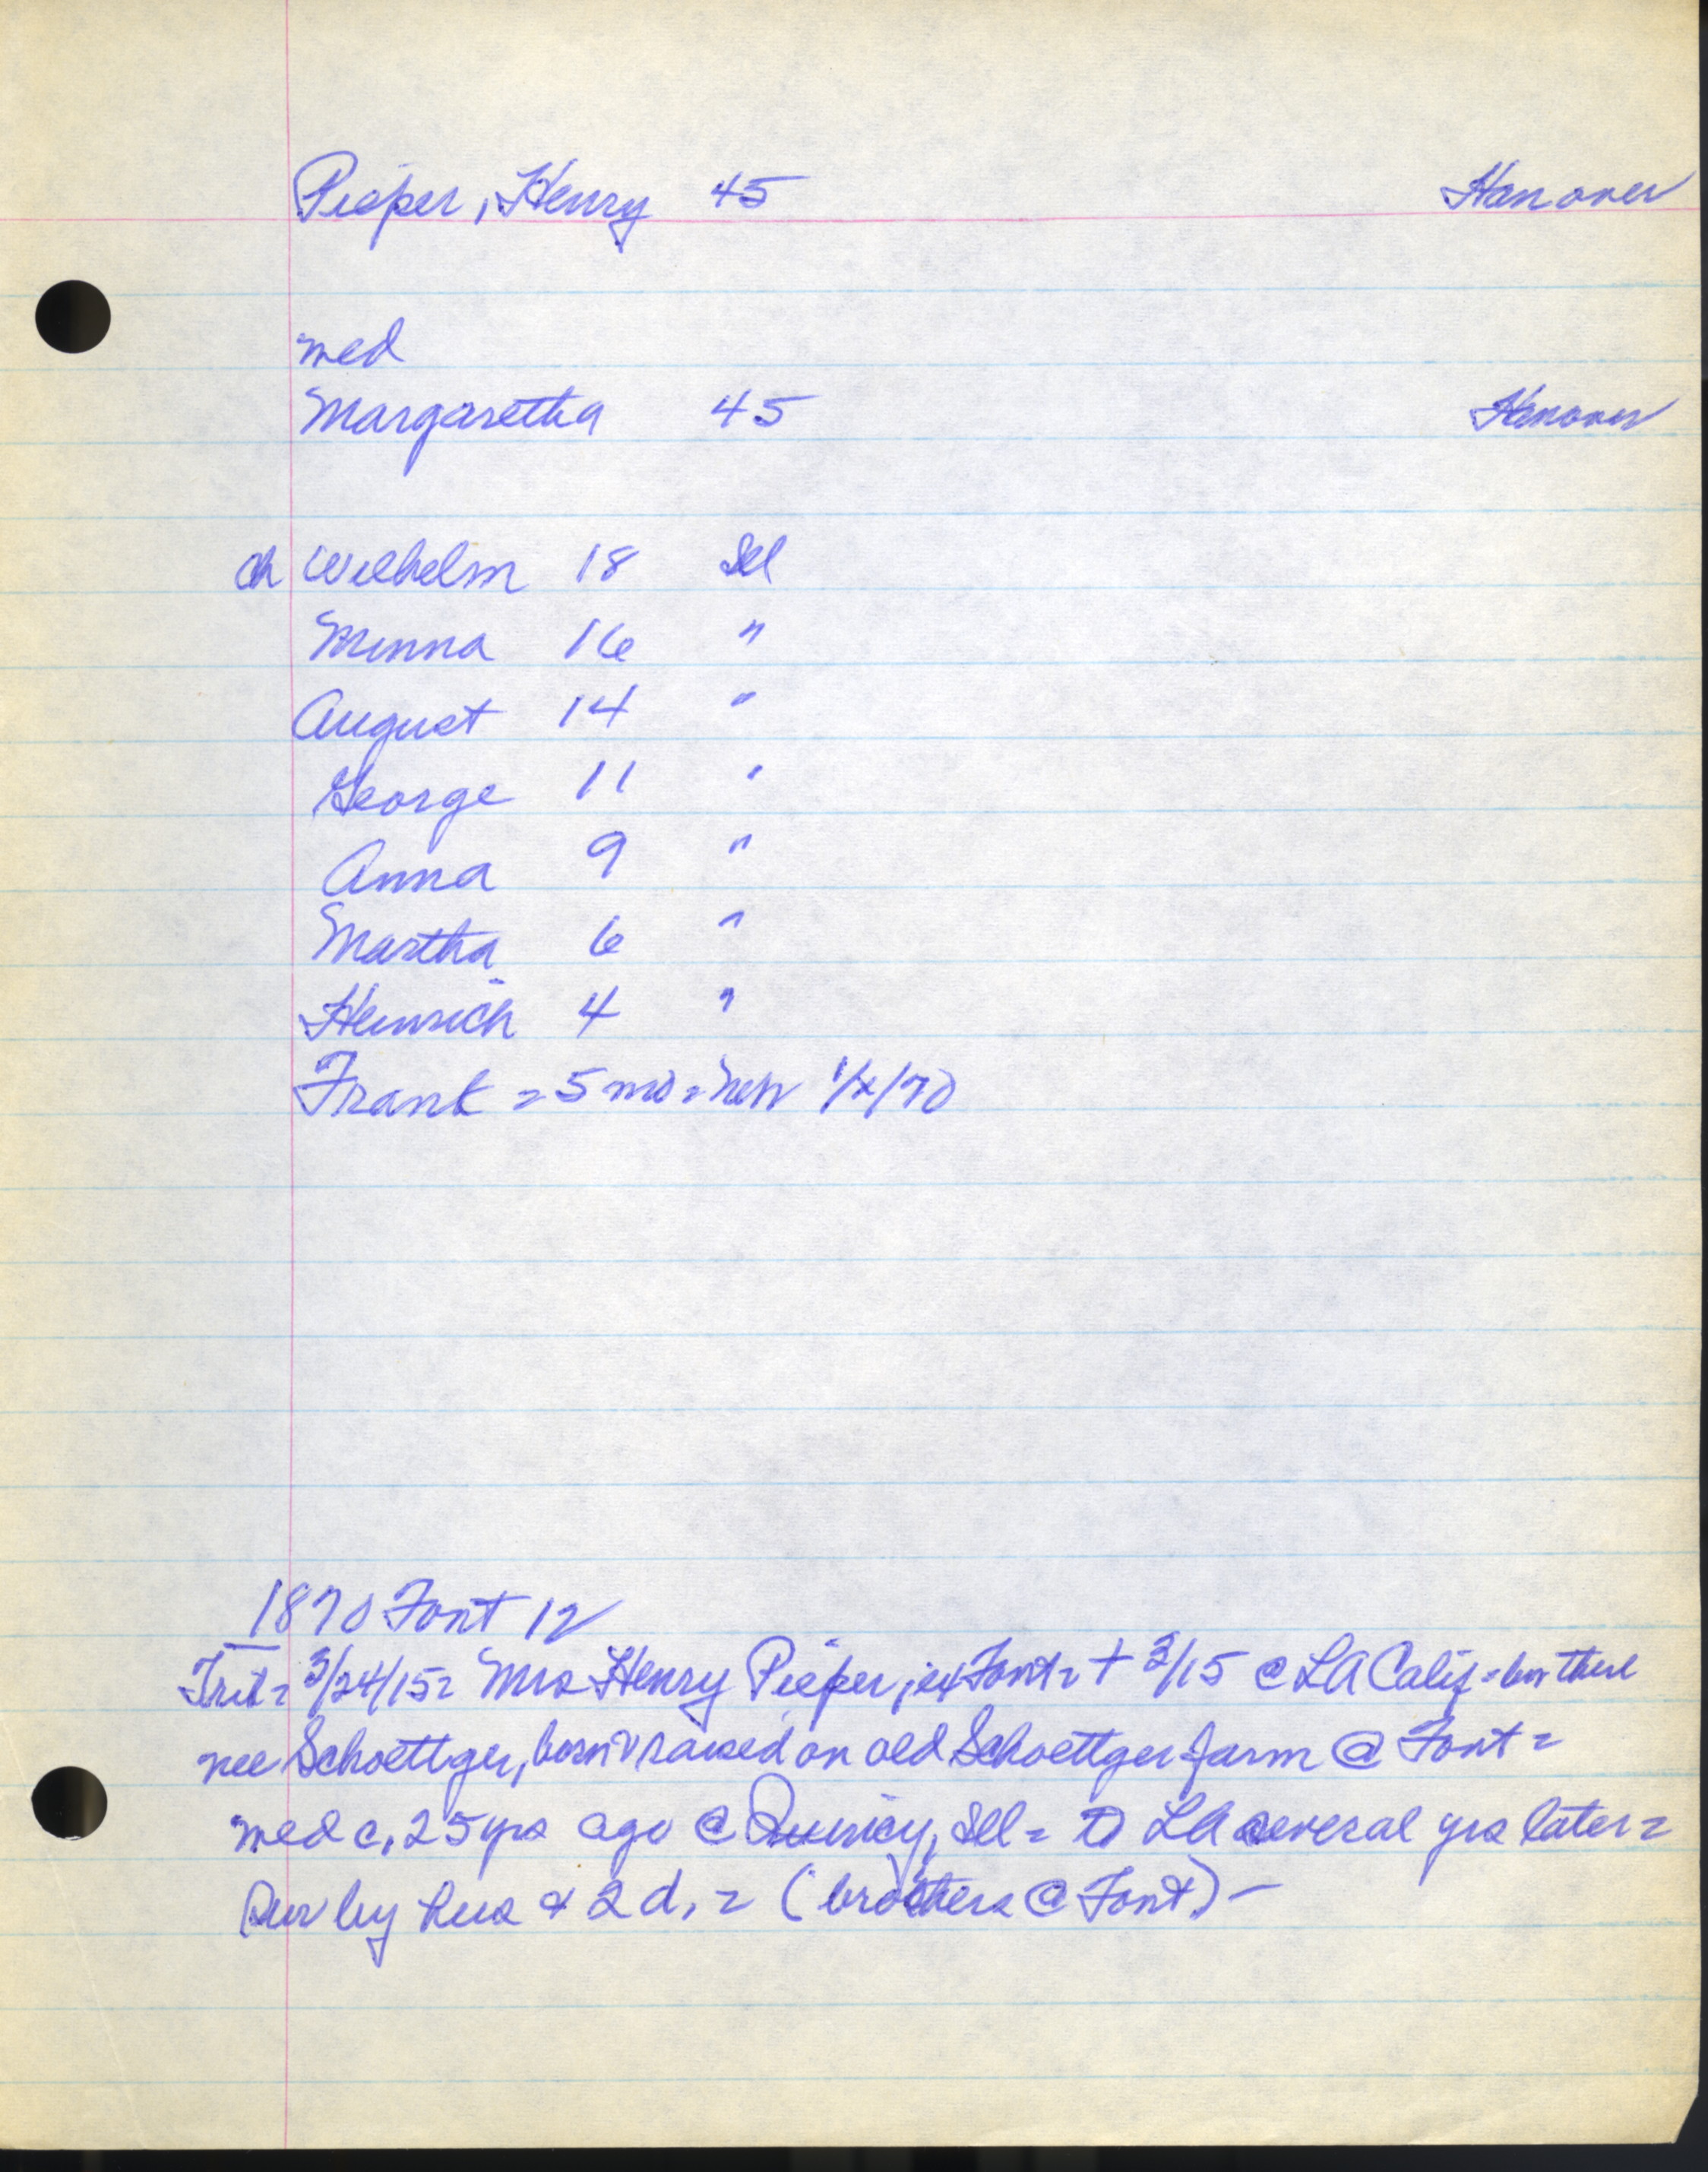 Pieper, Henry 45 Hanover
med
Margaretha 45 Hanover
ch Wilhelm 18 Ill
Minna 16 "
August 14 "
George 11 "
Anna 9 "
Martha 6 "
Heinrich 4 "
Frank = 5 mo = Neb 1/x/70
1870 Font 12
Trib = 3/24/15 = Mrs Henry Pieper, j, ex Font = + 3/15 @ LA Calif = bur there
nee Schoettger, born & raised on old Schoettger farm @ Font =
med c. 25 yrs ago @ Quincy, Ill = to LA several yrs later =
Sur by hus & 2 d. = (brothers @ Font) -